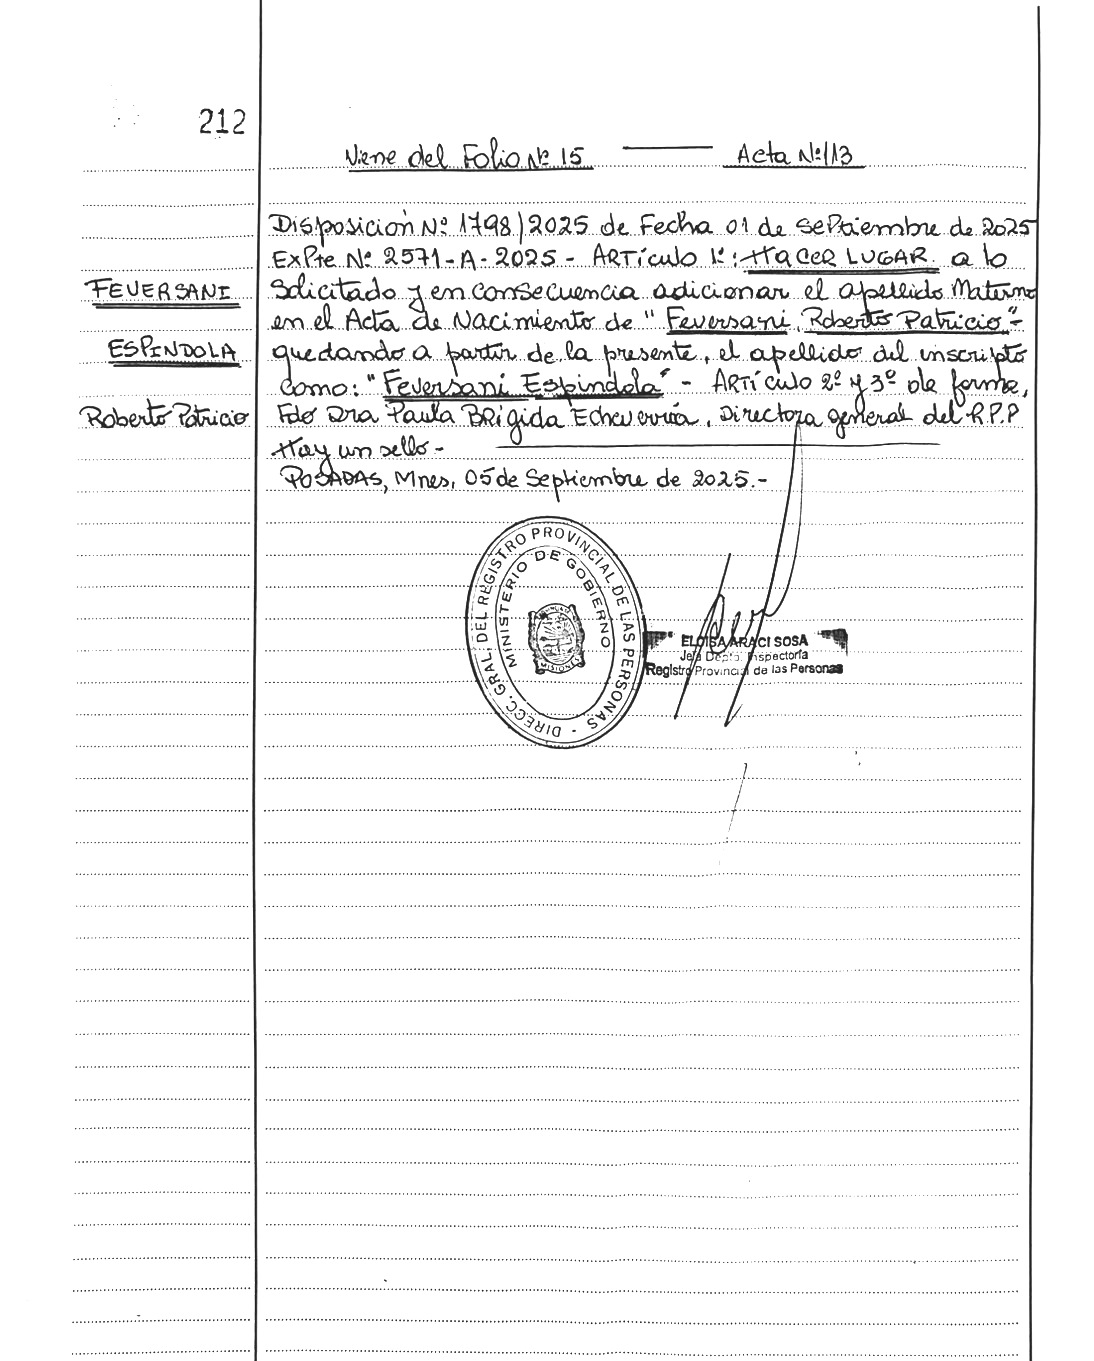 212
Viene del Folio Nº 15 Acta Nº 113
Disposición Nº 1798/2025 de Fecha 01 de septiembre de 2025
ExPte Nº 2571-A-2025 - ARTÍculo 1º: HACER LUGAR a lo
FEVERSANI
Solicitado y en consecuencia adicionar el apellido Materno
en el Acta de Nacimiento de "Feversani Roberto Patricio"-
ESPINDOLA
quedando a partir de la presente, el apellido del inscripto
como: "Feversani Espindola" - ARTÍculo 2º y 3º de forma,
Roberto Patricio
Fdo Dra Paula BRígida Echeverría, Directora general del R.P.P
Hay un sello-
POSADAS, Mnes, 05 de Septiembre de 2025.-
DIRECC. GRAL. DEL REGISTRO PROVINCIAL DE LAS PERSONAS -
MINISTERIO DE GOBIERNO
MISIONES
ELOISA ARACI SOSA
Jefa Depto. Inspectoría
Registro Provincial de las Personas